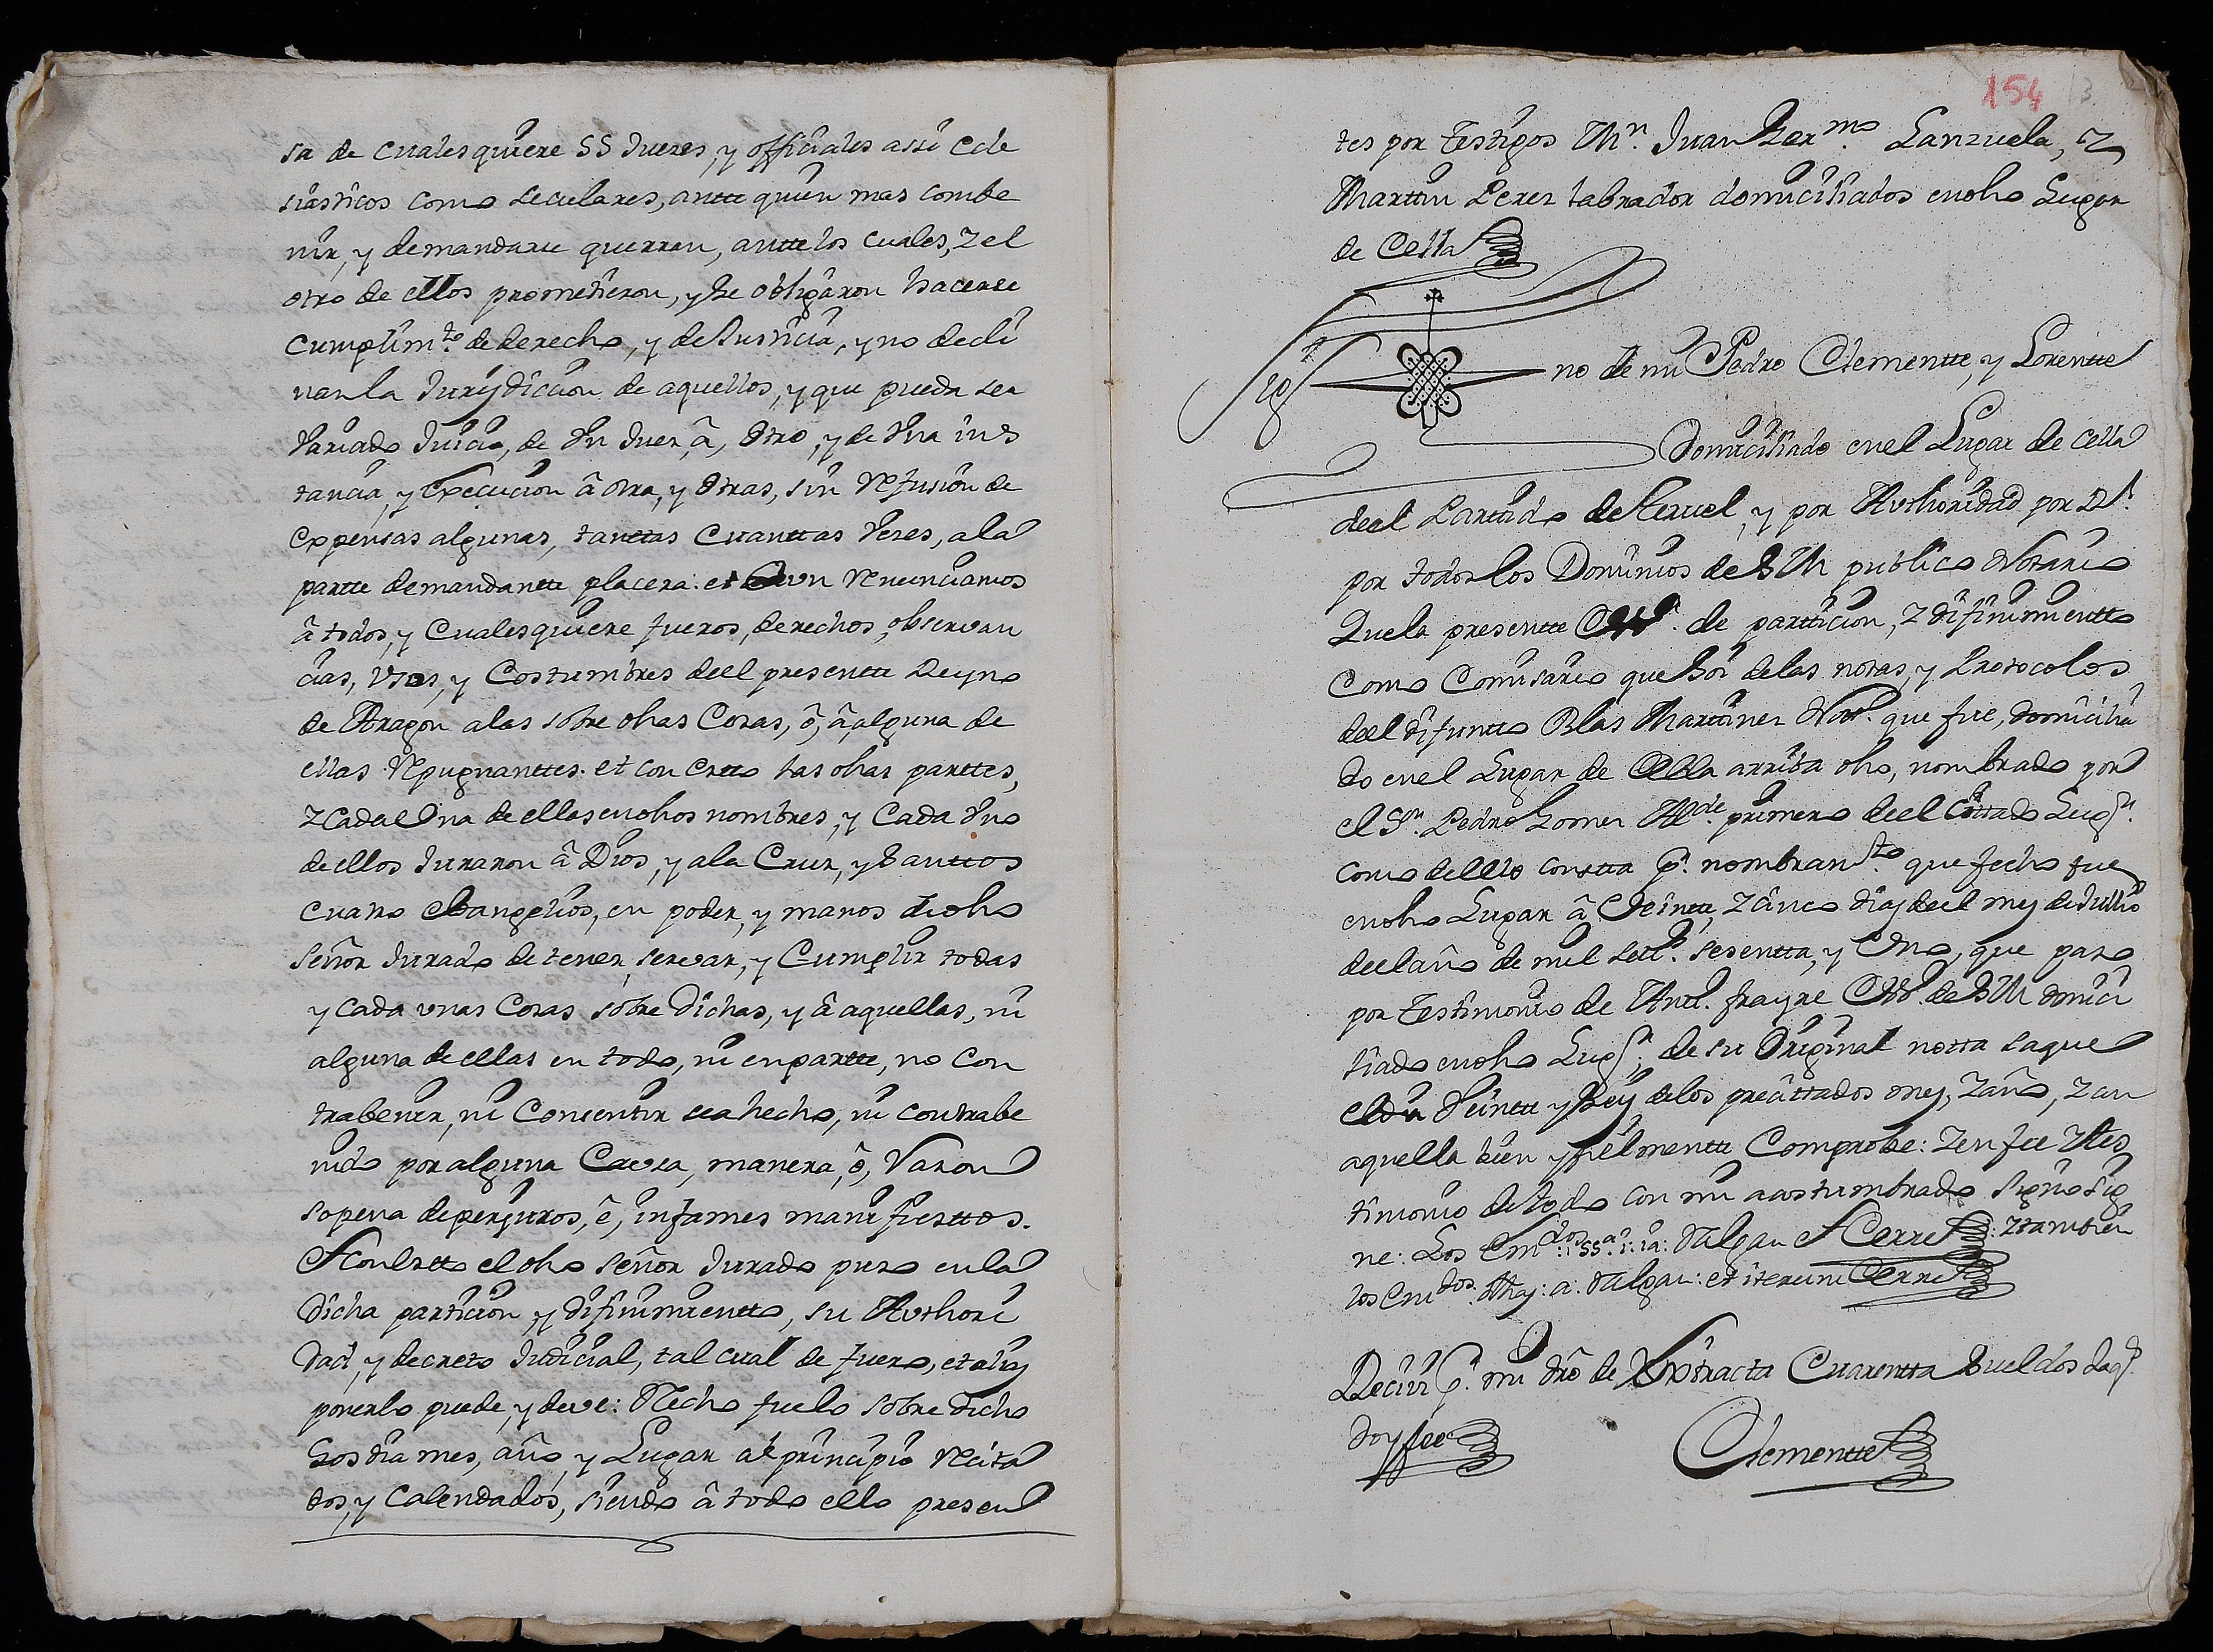 sa de cualesquiere SS Juezes, y officiales assi ecle
siasticos como seculares, antte quien mas combe
nir, y demandarse querran, antte los cuales, z el
otro de ellos prometieron, y se obligaron hacerse
cumplimto. de derecho, y de Justicia, y no decli
nar la Jurydiccion de aquellos, y que pueda ser
variado Juicio, de Vn Juez, â, otro, y de Vna ins
tancia, y Execucion â otra, y otras, sin Refusion de
expensas algunas, tanttas cuanttas Vezes, a la
partte demandantte placera. et Renunciamos
â todos, y cualesquiere fueros, derechos, observan
cias, vsos, y Costumbres deel presentte Reyno
de Aragon a las sobre dhas Cosas, ô, â, alguna de
ellas Repugnanttes. et con estto las dhas parttes,
z cada Vna de ellas en dhos nombres, y Cada Vno
de ellos Juraron â Dios, y a la Cruz, y Santtos
cuatro ebangelios, en poder, y manos de dho
señor Jurado de tener, servar, y Cumplir todas
y cada vnas Cosas sobre dichas, y â aquellas, ni
alguna de ellas en todo, ni en partte, no con
trabenir, ni Consentir sea hecho, ni contrabe
nido por alguna Causa, manera, ô, Razon
so pena de perjuros, ê, infames manifiesttos.
Et con estto el dho señor Jurado puso en la
dicha particion, y difinimientto, su Authori
dad, y decreto Judicial, tal cual de fuero, et alias
ponerlo puede, y deve: Hecho fue lo sobre dicho
Los dia mes, año, y Lugar al principio Recita
dos, y Calendados, siendo â todo ello presen
154 13
tes por testigos Mn. Juan Lanzuela, z
Marttin Perez labrador domiciliados en dho Lugar
de Cella
Sig no de mi Pedro Clementte, y Lorentte
Domiciliado en el Lugar de Cella
deel Parttido de Teruel, y por Authoridad por Rl.
por todos los Dominios de S M publico Notario
Que la presentte de partticion, z difinimientto
como Comisario que Soi de las notas, y Protocolos
deel difuntto Blas Marttinez Nott. que fue, domicilia
do en el Lugar de Cella arriba dho, nombrado por
el Sr. Pedro Gomez Allde. primero deel Cittado Lugr.
como de ello constta pr. nombranto. que fecho fue
en dho Lugar â Veintte, z cinco dias deel mes de Jullio
deel año de mil sett. sesentta, y Vno, que paso
por testimonio de Antt. frayre de S M domici
liado en dho Lugr. de su Original notta saque
el dia Veintte y Seys de los precittados mes, z año, z con
aquella bien y fielmentte Comprobe: z en fee y tes
timonio de todo con mi acostumbrado Signo Sig
ne: Los Emdos: Valgan et Cerre: z tambien
los Emdos. a. Valgan: et iterum Cerre
Recivi pr. mi dro de Extracta Cuarentta Sueldos Jaqs.
doy fee Clementte